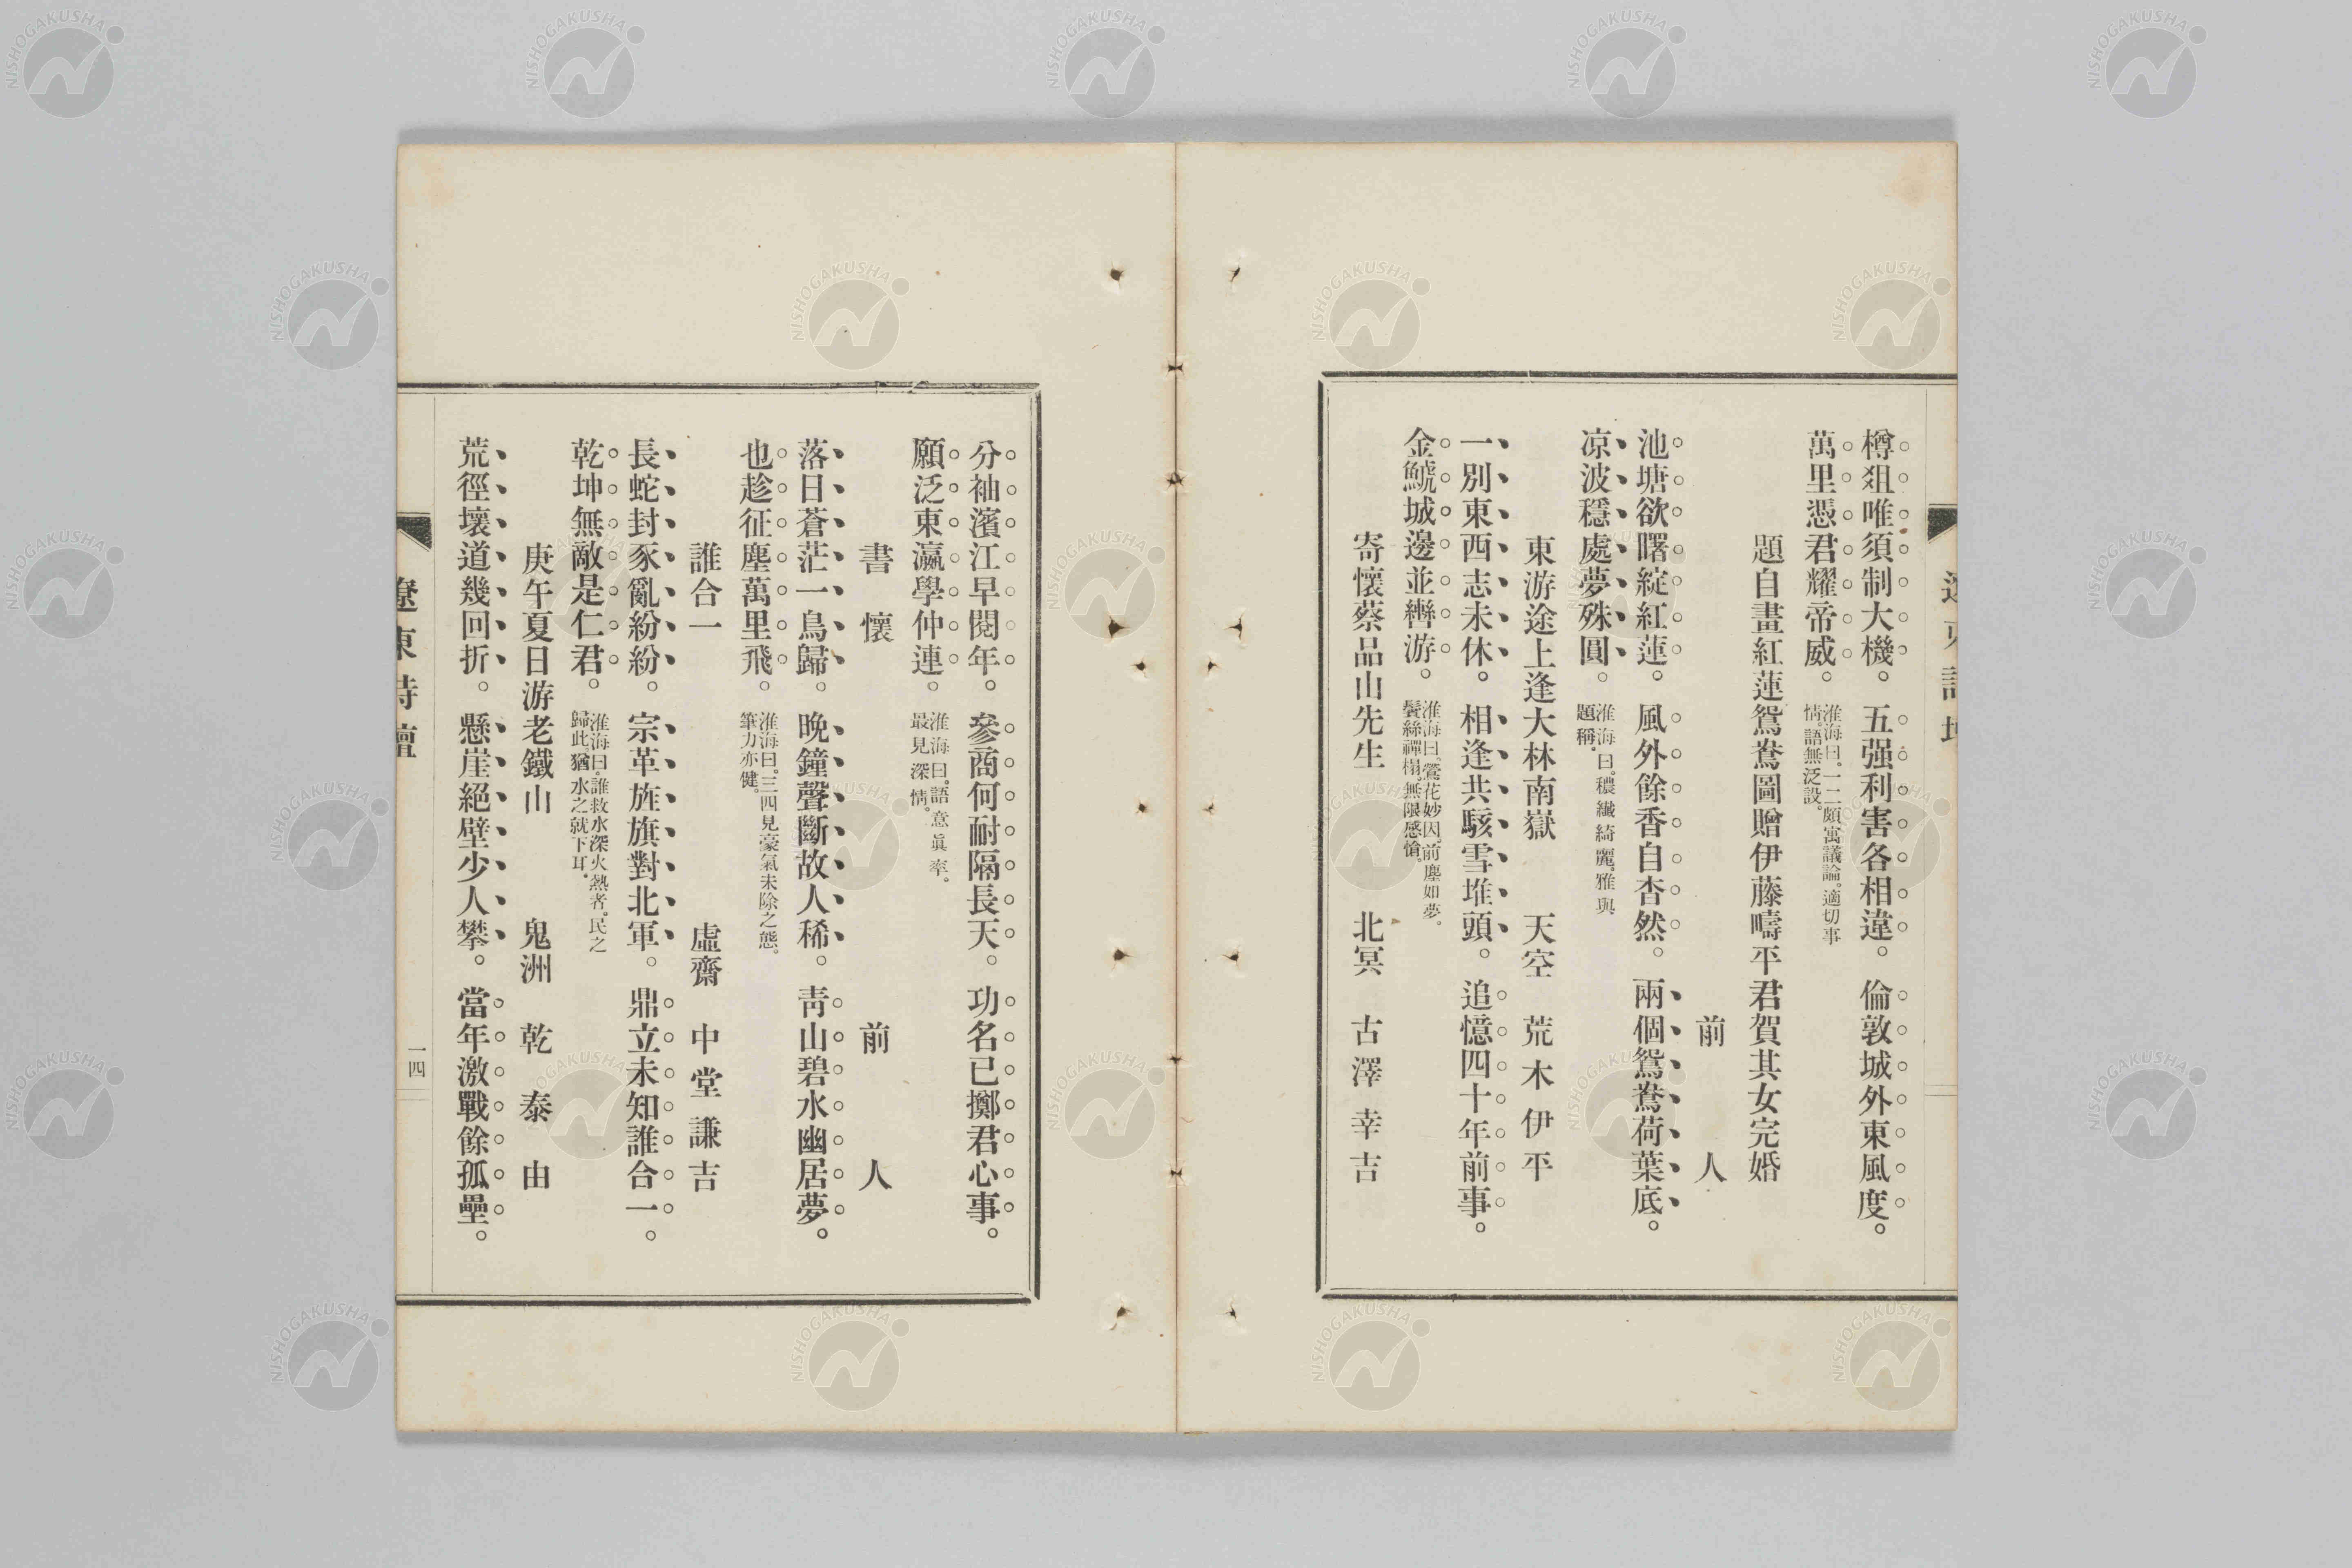 樽俎唯須制大機。五强利害各相違。倫敦城外東風度。
萬里憑君耀帝威。淮海曰。一二頗寓議論。適切事
情。語無泛設。
題自畫紅蓮鴛鴦圖贈伊藤疇平君賀其女完婚
前人
池塘欲曙綻紅蓮。風外餘香自杳然。兩個鴛鴦荷葉底。
凉波穩處夢殊圓。淮海曰。穠纖綺麗。雅與
題稱。
東游途上逢大林南嶽 天空 荒木伊平
一別東西志未休。相逢共駭雪堆頭。追憶四十年前事。
金鯱城邊並轡游。淮海曰。鶯花妙因。前塵如夢。
鬢絲禪榻。無限感愴。
寄懷蔡品山先生 北冥 古澤幸吉
分袖濱江早閱年。參商何耐隔長天。功名已擲君心事。
願泛東瀛學仲連。淮海曰。語意眞率。
最見深情。
書懷 前人
落日蒼茫一鳥歸。晚鐘聲斷故人稀。靑山碧水幽居夢。
也趁征塵萬里飛。淮海曰。三四見豪氣未除之態。
筆力亦健。
誰合一 虛齋 中堂謙吉
長蛇封豕亂紛紛。宗革旌旗對北軍。鼎立未知誰合一。
乾坤無敵是仁君。淮海曰。誰救水深火熱者。民之
歸此。猶水之就下耳。
庚午夏日游老鐵山 鬼洲 乾泰由
荒徑壞道幾回折。懸崖絕壁少人攀。當年激戰餘孤壘。
遼東詩壇
一四
NISHOGAKUSHA